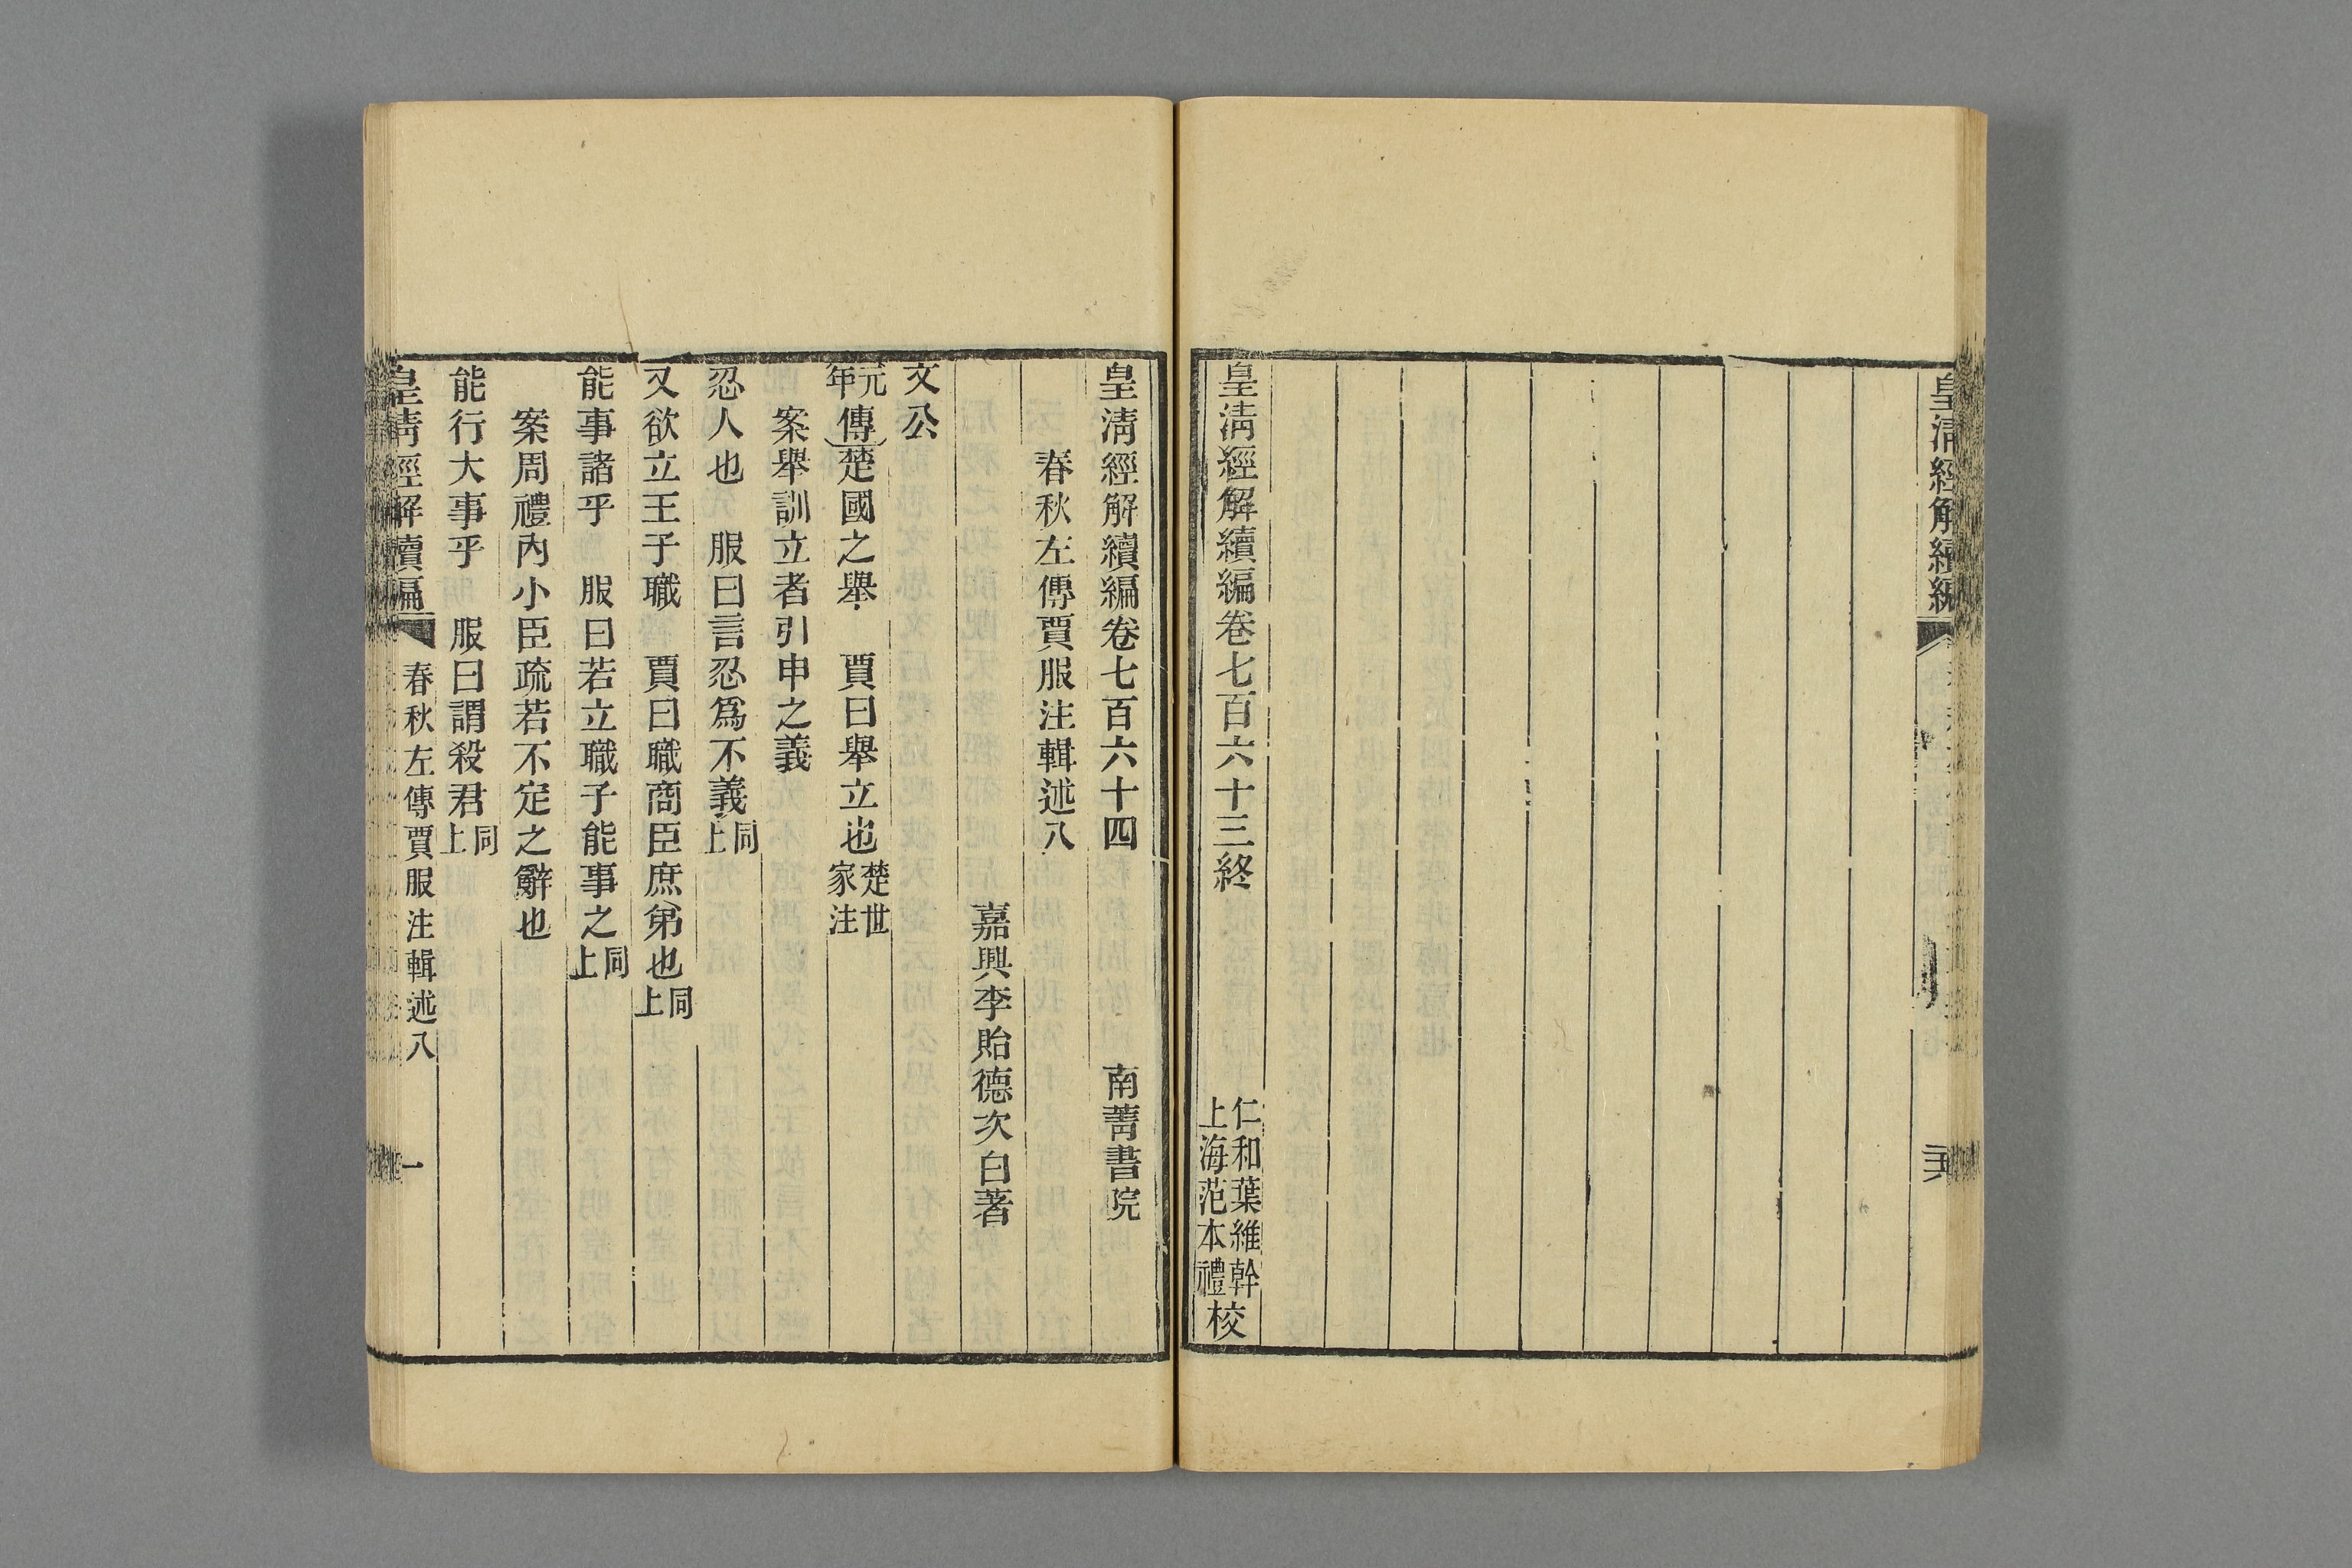 皇清經解續編
皇清經解續編卷七百六十三終
仁和葉維幹
上海范本禮
校
皇清經解續編卷七百六十四 南菁書院
春秋左傳賈服注輯述八
嘉興李貽德次白著
文公
元年傳楚國之舉 賈曰舉立也楚世家注
案舉訓立者引申之義
忍人也 服曰言忍爲不義同上
又欲立王子職 賈曰職商臣庶弟也同上
能事諸乎 服曰若立職子能事之同上
案周禮內小臣疏若不定之辭也
能行大事乎 服曰謂殺君同上
皇清經解續編 春秋左傳賈服注輯述八 一